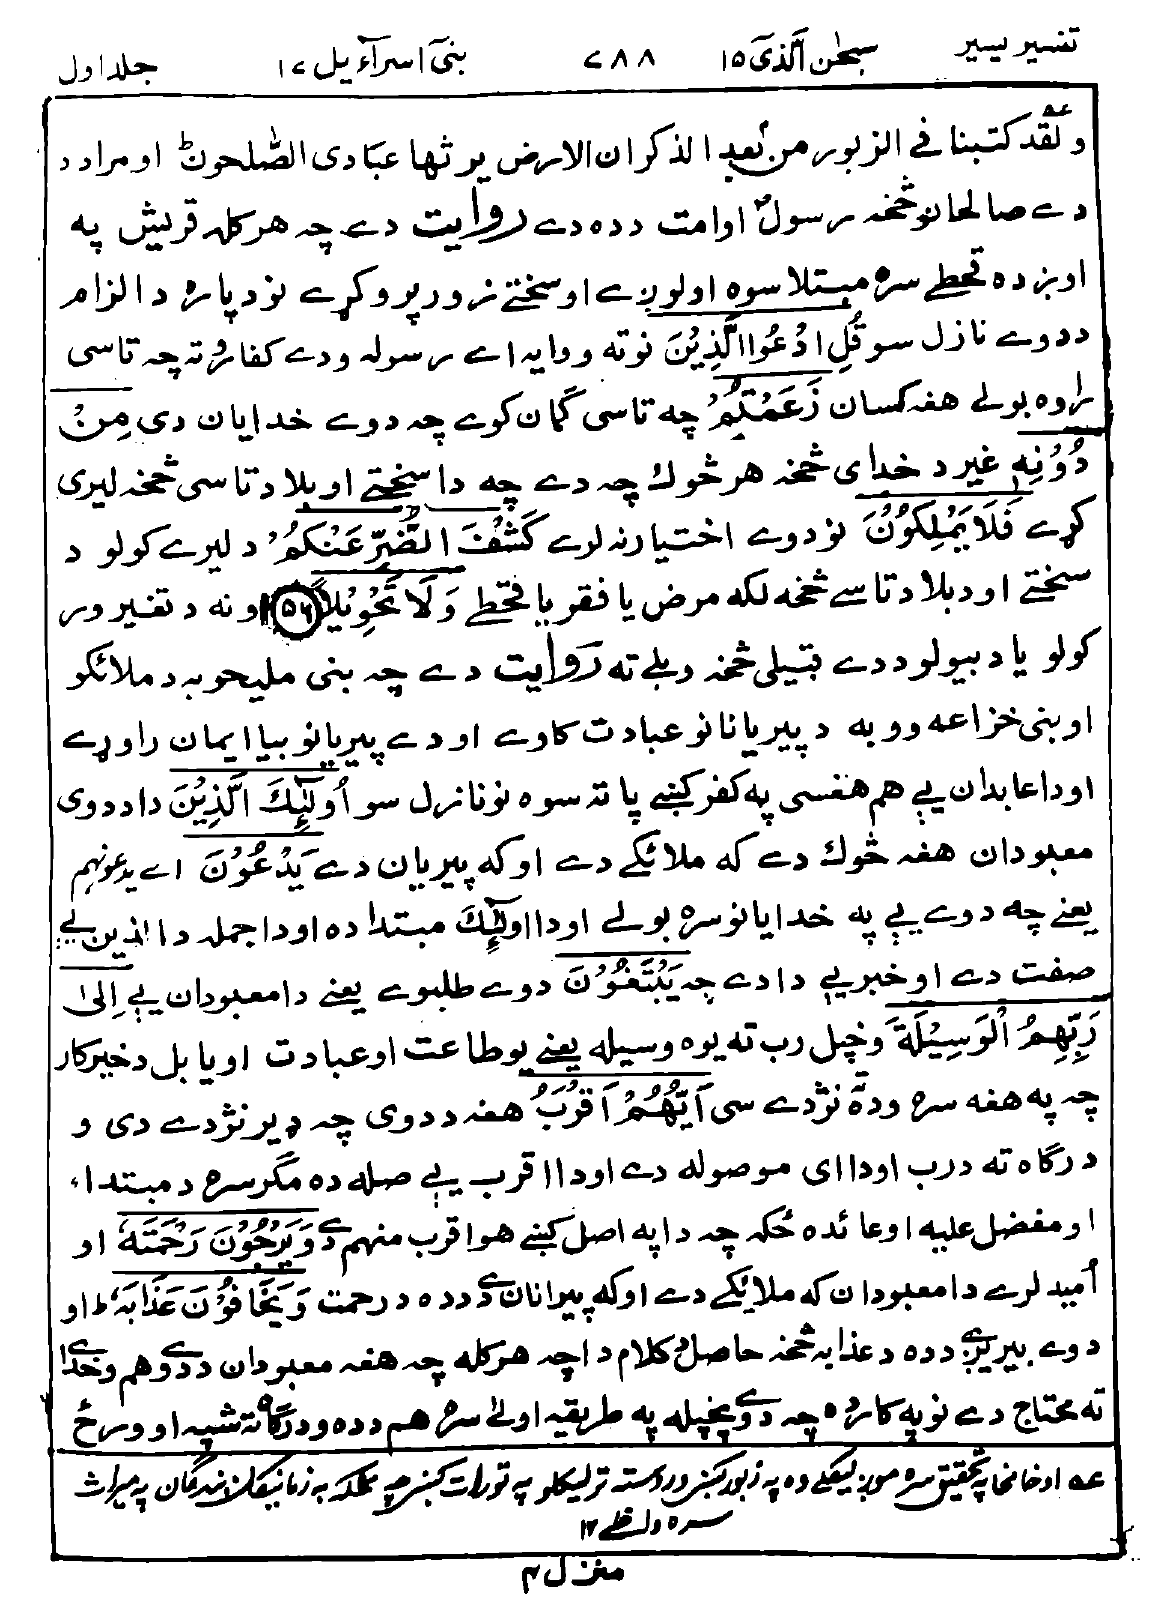 تفسیر یسیر سبحٰن الّذی ۱۵ ۷۸۸ بنی اسرآءیل ۱۷ جلد اول
ولقد کتبنا فے الزبور من بعد الذکر ان الارض یرثها عبادی الصّٰلحون ط او مراد د
دے صالحانو څخه رسول او امت دده دے روایت دے چه هر کله قریش په
اوبزده قحطے سره مبتلا سوه اولوږے او سختے زور پرو کړے نو دپاره د الزام
ددوے نازل سو قُلِ ادْعُوا الَّذِیْنَ نو ته ووایه اے رسوله ودے کفارو ته چه تاسی
راوه بولے هغه کسان زَعَمْتُمْ چه تاسی ګمان کوے چه دوے خدایان دی مِنْ
دُوْنِهٖ غیر د خدای څخه هر څوك چه دے چه دا سختے او بلا د تاسی څخه لیری
کړے فَلَا یَمْلِکُوْنَ نو دوے اختیار نه لرے کَشْفَ الضُّرِّ عَنْکُمْ د لیرے کولو د
سختے او د بلا د تاسے څخه لکه مرض یا فقر یا قحطے وَلَا تَحْوِیْلًا ﴿۵۶﴾ او نه د تغیر ور
کولو یا د بیولو ددے قبیلی څخه و بلے ته روایت دے چه بنی ملیحو به د ملائکو
او بنی خزاعه وو به د پیریانانو عبادت کاوے او دے پیریانو بیا ایمان راوړے
او دا عابدان یے هم هغسی په کفر کښے پاته سوه نو نازل سو اُولٰٓئِكَ الَّذِیْنَ دا ددوی
معبودان هغه څوك دے که ملائکے دے او که پیریان دے یَدْعُوْنَ اے یدعونهم
یعنے چه دوے یے په خدایانو سره بولے او دا اولٰٓئِكَ مبتدا ده او دا جمله د الذین یے
صفت دے او خبر یے دا دے چه یَبْتَغُوْنَ دوے طلبوے یعنے دا معبودان یے اِلٰی
رَبِّهِمُ الْوَسِیْلَةَ و خپل رب ته یوه وسیله یعنے یو طاعت او عبادت او یا بل د خیر کار
چه په هغه سره وده ته نژدے سی اَیُّهُمْ اَقْرَبُ هغه ددوی چه ډیر نژدے دی و
درګاه ته درب او دا ای موصوله دے او دا اقرب یے صله ده مګر سره د مبتداء
او مفضل علیه او عائده ځکه چه دا په اصل کښے هو اقرب منهم دے وَیَرْجُوْنَ رَحْمَتَهٗ او
اُمید لرے دا معبودان که ملائکے دے او که پیرانان دے دده د رحمت وَیَخَافُوْنَ عَذَابَهٗ ط او
دوے بیریږے دده د عذابه څخه حاصل د کلام دا چه هر کله چه هغه معبودان ددے هم و خدای
ته محتاج دے نو په کار ده چه دوے پخپله په طریقه اولٰے سره هم دده و درګاه ته شپه او ورځ
عـه او خامخا په تحقیق سره موږ لیکلے وه په زبور کښے وروسته تر لیکلو په تورات کښے چه مځکه به زما نیکان بندګان په میراث
سره واخلے ۱۲
منزل ۴